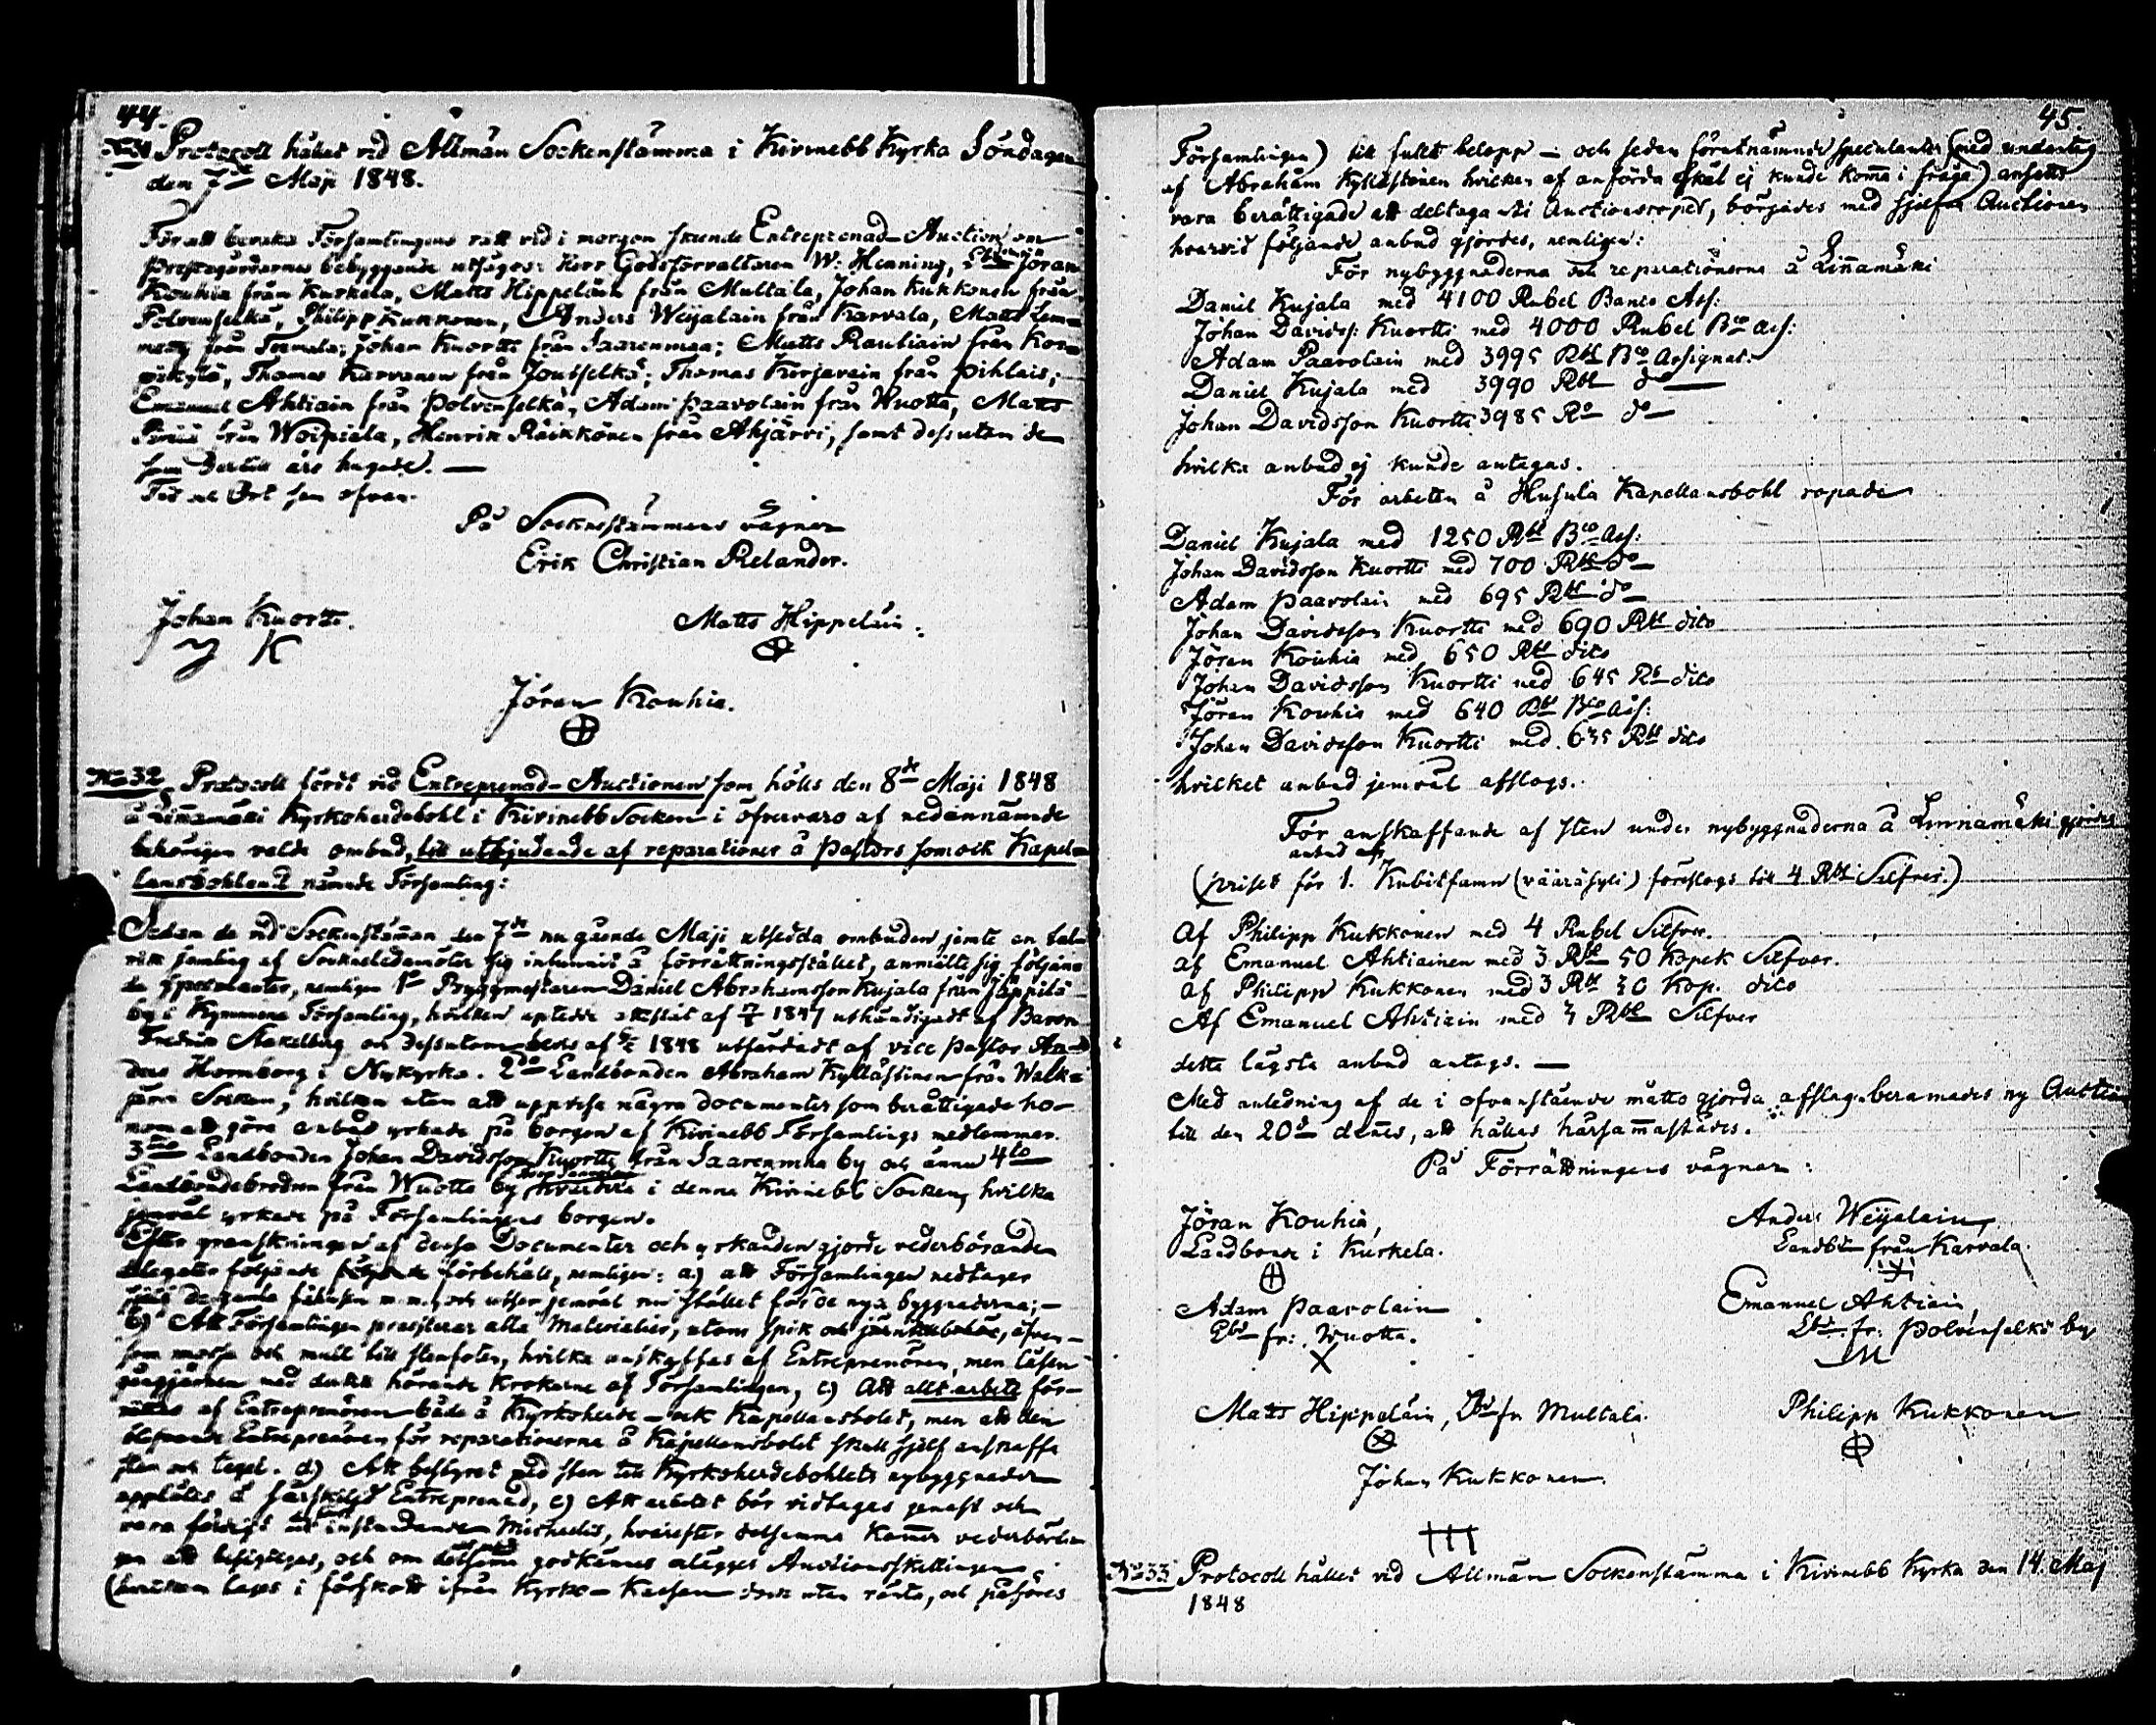 44.
N:31 Protocoll hållet vid Allmän Sockenstämma i Kivinebb Kyrka Söndagen
den 7de Maji 1848.
För att bevaka Församlingens rätt vid i morgon skeende Entreprenad-Auction om
Prestegårdarnes bebyggande utsågos: Herr Godsförvaltaren W: Henning, Jöran
Kouhia från Kuskela, Matts Hippeläin från Multala, Johan Kukkonen från
Polvenselkä, Philipp Kukkonen, Anders Weijalain från Karvala, Matts Lem-
från Termola; Johan Kuortti från Saarenmaa; Matts Rautiain från
Thomas Karvanen från Joutselkä; Thomas Korjavain från Pihlais;
Emanuel Ahtiain från Polvenselkä, Adam Paavolain från Wuotta, Matts
från Woipiala, Henrik Räikkönen från Ahjärvi, samt dessutom de
som dertill äro hugade. —
Tid och Ort som ofvan.
På Sockenstämmans vägnar
Erik Christian Relander.
Johan Kuortti. Matts Hippeläin.
J K
Jöran Kouhia.
No 32 Protocoll fördt vid Entreprenad-Auctionen som hölls den 8de Maji 1848
å Linnamäki Kyrkoherdebohl i Kivinebb Socken i öfvervaro af nedannämnde
behörigen valde ombud, till utbjudande af reparationer å Pastors som ock Kapel-
lansbohlen i nämnde Församling:
Sedan de vid Sockenstämman den 7de nu gående Maji utsedda ombuden jemte en tal-
rik samling af Sockneledamöter sig infunnit å förrättningsstället, anmälte sig följan-
de Speculanter, nemligen 1o Byggmästaren Daniel Abrahamsson Kujala från Jäppilä
by i Kymmene Församling, hvilken uptedde attestat af 1847 uthändigadt af Baron
Fredric Stakelberg och dessutom af 1848 utfärdadt af vice Pastor An-
ders Hornborg i Nykyrka. 2do Landbonden Abraham Kyllästinen från Walk-
järvi Socken, hvilken utan att uppvisa några documenter som berättigade ho-
nom att göra anbud yrkade på borgen af Kivinebb Församlings medlemmar.
3tio Landbonden Johan Davidsson Kuortti från Saarenmaa by och ännu 4to
Landbondebrodren från Wuotta by i denna Kivinebb Socken, hvilka
jemväl yrkade på Församlingens borgen.
Efter granskningen af dessa Documenter och yrkanden gjorde vederbörande
delegater följande förbehåll, nemligen: a) att Församlingen nedtager
de gamla m.m. och utser jemväl nu stället för de nya byggnaderna; —
b) Att Församlingen presterar alla Materialier, utom spik och äfven-
som mossa och mull till stenfoten, hvilka anskaffas af Entreprenören, men låsen
gångjernen med dertill hörande krokarne af Församlingen, c) Att allt arbete för-
rättas af Entreprenören både å Kyrkoherde- och Kapellansbolet, men att den
blifvande Entreprenören för reparationerna å Kapellansbolet skall sjelf anskaffa
sten och tegel. d) Att bestyret med sten till Kyrkoherdebohlets nybyggnader
upplåtes å särskild Entreprenad, e) Att arbetet bör vidtagas genast och
vara färdigt till instundande Michaelis, hvarefter detsamma kommer vederbörli-
gen att besigtigas, och om detsamma godkännes erlägges Auctionsskillingen
(hvilken tages i förskott ifrån Kyrko-Kassan dock utan ränta, och påföres
45
Församlingen) till fullt belopp — och sedan förutnämnde speculanter (med undantag
af Abraham Kyllästinen hvilken af anförda skäl ej kunde komma i fråga) ansetts
vara berättigade att deltaga uti Auctionsropet, börjades med sjelfva Auctionen
hvarvid följande anbud gjordes, nemligen:
För nybyggnaderna och reparationerna å Linnamäki
Daniel Kujala med 4100 Rubel Banco Ass:
Johan Davidss: Kuortti med 4000 Rubel Bco Ass:
Adam Paavolain med 3995 Rbl Bco Assignat:
Daniel Kujala med 3990 Rbl do
Johan Davidsson Kuortti 3985 Ro do
hvilka anbud ej kunde antagas.
För arbeten å Husula Kapellansbohl ropade
Daniel Kujala med 1250 Rbl Bco Ass:
Johan Davidsson Kuortti med 700 Rbl do
Adam Paavolain med 695 Rbl do
Johan Davidsson Kuortti med 690 Rbl dito
Jöran Kouhia med 650 Rbl dito
Johan Davidsson Kuortti med 645 Rb dito
Jöran Kouhia med 640 Rbl Bco Ass:
Johan Davidsson Kuortti med 635 Rbl dito
hvilket anbud jemväl afslogs.
För anskaffande af sten under nybyggnaderna å Linnamäki gjordes
anbud af
(priset för 1. Kubikfamn (vääräsyli) föreslogs till 4 Rbl Silfver.)
Af Philipp Kukkonen med 4 Rubel Silfver.
af Emanuel Ahtiainen med 3 Rbl 50 Kopek Silfver.
af Philipp Kukkonen med 3 Rbl 30 Kop. dito
Af Emanuel Ahtiain med 3 Rbl Silfver
detta lägsta anbud antogs. —
Med anledning af de i ofvanstående måtto gjorda afslag beramades ny Auction
till den 20de dennes, att hållas härsammastädes.
På Förrättningens vägnar:
Jöran Kouhia,
Landbonde i Kuskela.
Anders Weijalain,
Landb: från Karvala.
Adam Paavolain
Lbd fr: Wuotta.
X
Emanuel Ahtiain,
Lbd. fr: Polvenselkä by
Matts Hippeläin, fr Multala.
Philipp Kukkonen
Johan Kukkonen.
No 33 Protocoll hållet vid Allmän Sockenstämma i Kivinebb Kyrka den 14. Maj
1848